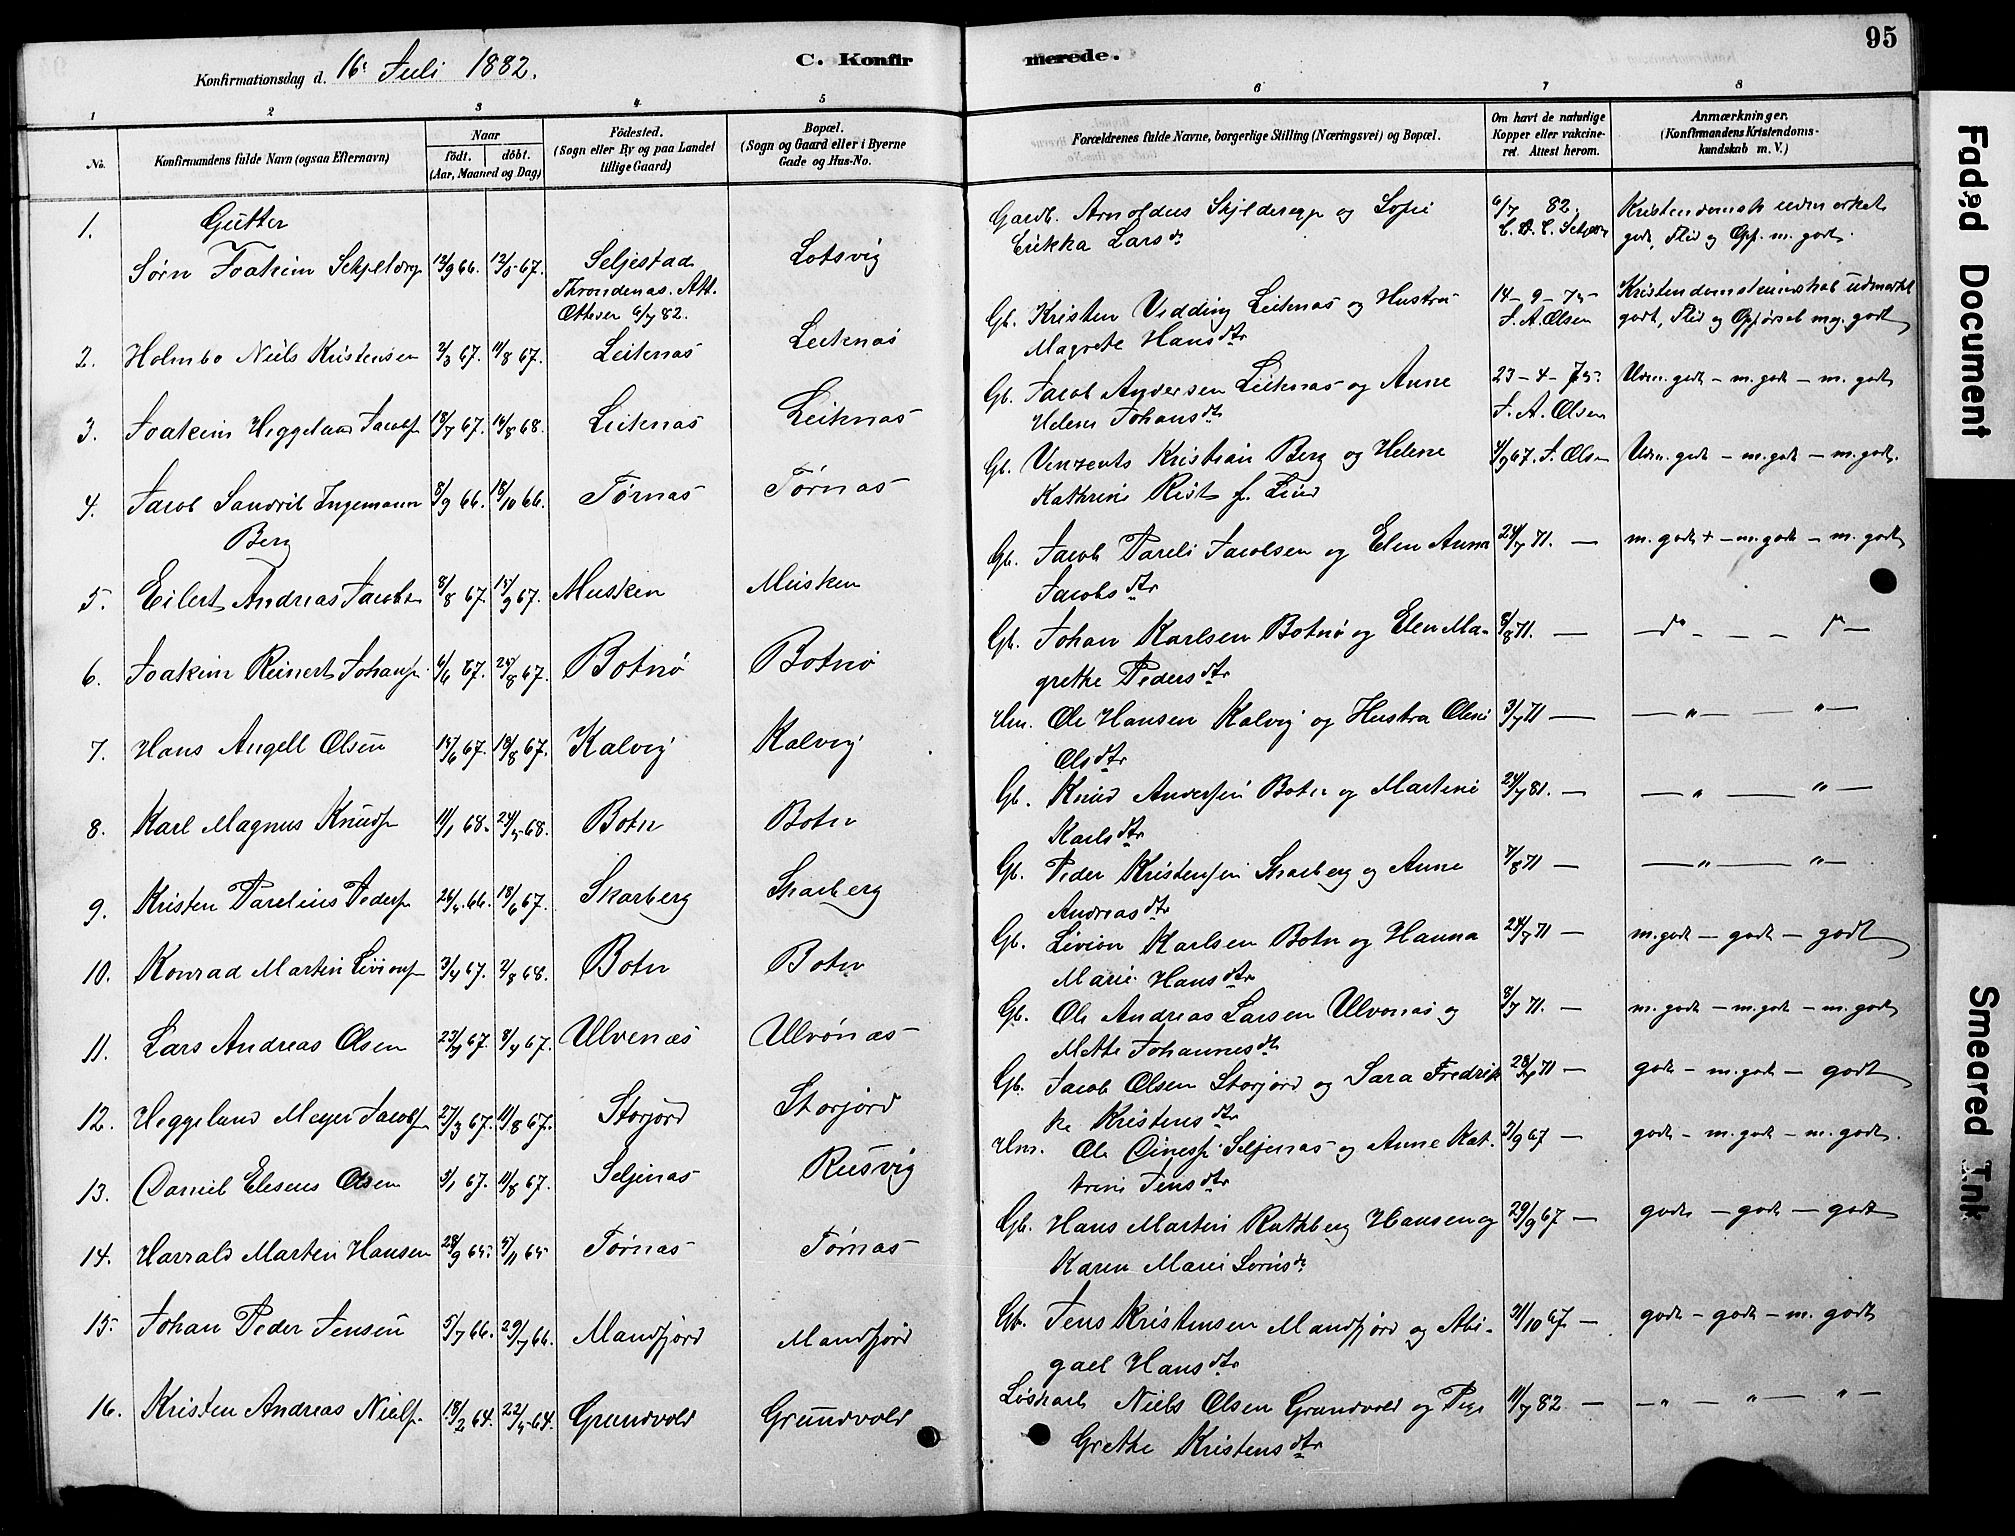 95
Konfirmationsdag d. 16. Juli 1882.
C. Konfirmerede.
1 2 3 4 5 6 7 8
No.
Konfirmandens fulde Navn (ogsaa Efternavn)
Naar
født. døbt.
(Aar, Maaned og Dag)
Fødested.
(Sogn eller By og paa Landet
tillige Gaard)
Bopæl.
(Sogn og Gaard eller i Byerne
Gade og Hus-No.
Forældrenes fulde Navne, borgerlige Stilling (Næringsvei) og Bopæl.
Om havt de naturlige
Kopper eller vakcineret. Attest herom.
Anmærkninger.
(Konfirmandens Kristendomskundskab m. V.)
Gutter
1. Sørn Joakim 12/9 66. Seljestad Lotsvig
Throndenæs. Att.
6/7 82.
Gaardb. Arnoldus og Sofie
Erikka Larsdr
6/7 82.
Kristendomsk udmærket
godt, Flid og Opf. m. godt.
2. Holmbo Niels Kristensen 2/3 67. 11/8 67. Leiknæs Leiknæs
Gb. Kristen Vedding Leiknæs og Hustru
Magrete Hansdtr
14-9-75
J. A. Olsen
godt, Flid og Opførsel mg. godt
3. Joakim Heggeland Jacobs. 18/7 67. 14/8 68. Leiknæs Leiknæs
Gb. Jacob Andersen Leiknæs og Anne
Helene Johansdtr
23-4-75.
J. A. Olsen
Udm. godt - m. godt - m. godt
4. Jacob Ingemann 8/9 66. 18/10 66. Tørnæs Tørnæs
Berg
Gb. Vinzents Kristian Berg og Helene
Kathrine Rist f. Lund
4/9 67. J. Olsen
Udm. godt - m. godt - m. godt.
5. Eilert Andreas Jacobs. 8/8 67. 15/9 67. Musken Musken
Gb. Jacob Pareli Jacobsen og Elen Anna
Jacobsdtr
24/7 71. —
m. godt + - m. godt - m. godt
6. Joakim Reinert Johans. 6/6 67. 25/8 67. Botnø Botnø
Gb. Johan Karlsen Botnø og Elen Magrethe Pedersdtr
8/8 71. —
7. Hans Angell Olsen 15/6 67. 18/8 67. Kalvig Kalvig
Hm. Ole Hansen Kalvig og Hustru Oline
Olsdtr
3/7 71 —
— " — — " —
8. Karl Magnus Knuds. 11/1 68. 24/5 68. Botn Botn
Gb. Knud Andersen Botn og Martine
Karlsdtr
24/7 81. —
— " — " —
9. Kristen Parelius Peders. 18/6 67. Skarberg Skarberg
Gb. Peder Kristensen Skarberg og Anne
Andreasdtr
7/8 71 —
— " — " —
10. Konrad Martin Livions. 3/4 67. 2/8 68. Botn Botn
Gb. Livion Karlsen Botn og Hanna
Marie Hansdtr
24/7 71 —
m. godt - godt - godt
11. Lars Andreas Olsen Ulvenæs Ulvønæs
Gb. Ole Andreas Larsen Ulvønæs og
Mette Johannesdtr
8/7 71. —
m. godt - m. godt - m. godt
12. Heggeland Meyer Jacobs. 27/3 67. 11/8 67. Storjord Storjord
Gb. Jacob Olsen Storjord og Sara Fredrikke Kristensdtr
71 —
godt - m. godt - godt
13. Daniel Eleseus Olsen 3/1 67. 11/8 67. Seljenæs Rusvig
Hm. Ole Seljenæs og Anne Katrine Jensdtr
2/9 67 —
godt - m. godt - m. godt.
14. Harrald Martin Hansen 28/9 65. 5/11 65 Tørnæs Tørnæs
Gb. Hans Martin Rathberg Hansen og
Karen Marie
29/9 67 —
godt - godt - godt
15. Johan Peder Jensen 5/7 66. 29/7 66. Mandfjord Mandfjord
Gb. Jens Kristensen Mandfjord og Abigael Hansdtr
31/10 67. —
godt - godt - m. godt
16. Kristen Andreas Niels. 18/2 64. 22/5 64. Grundvold Grundvold
Løskarl Niels Olsen Grundvold og Pige
Grethe Kristensdtr
11/7 82. —
— " — " — " —
Faded Document
Smeared Ink